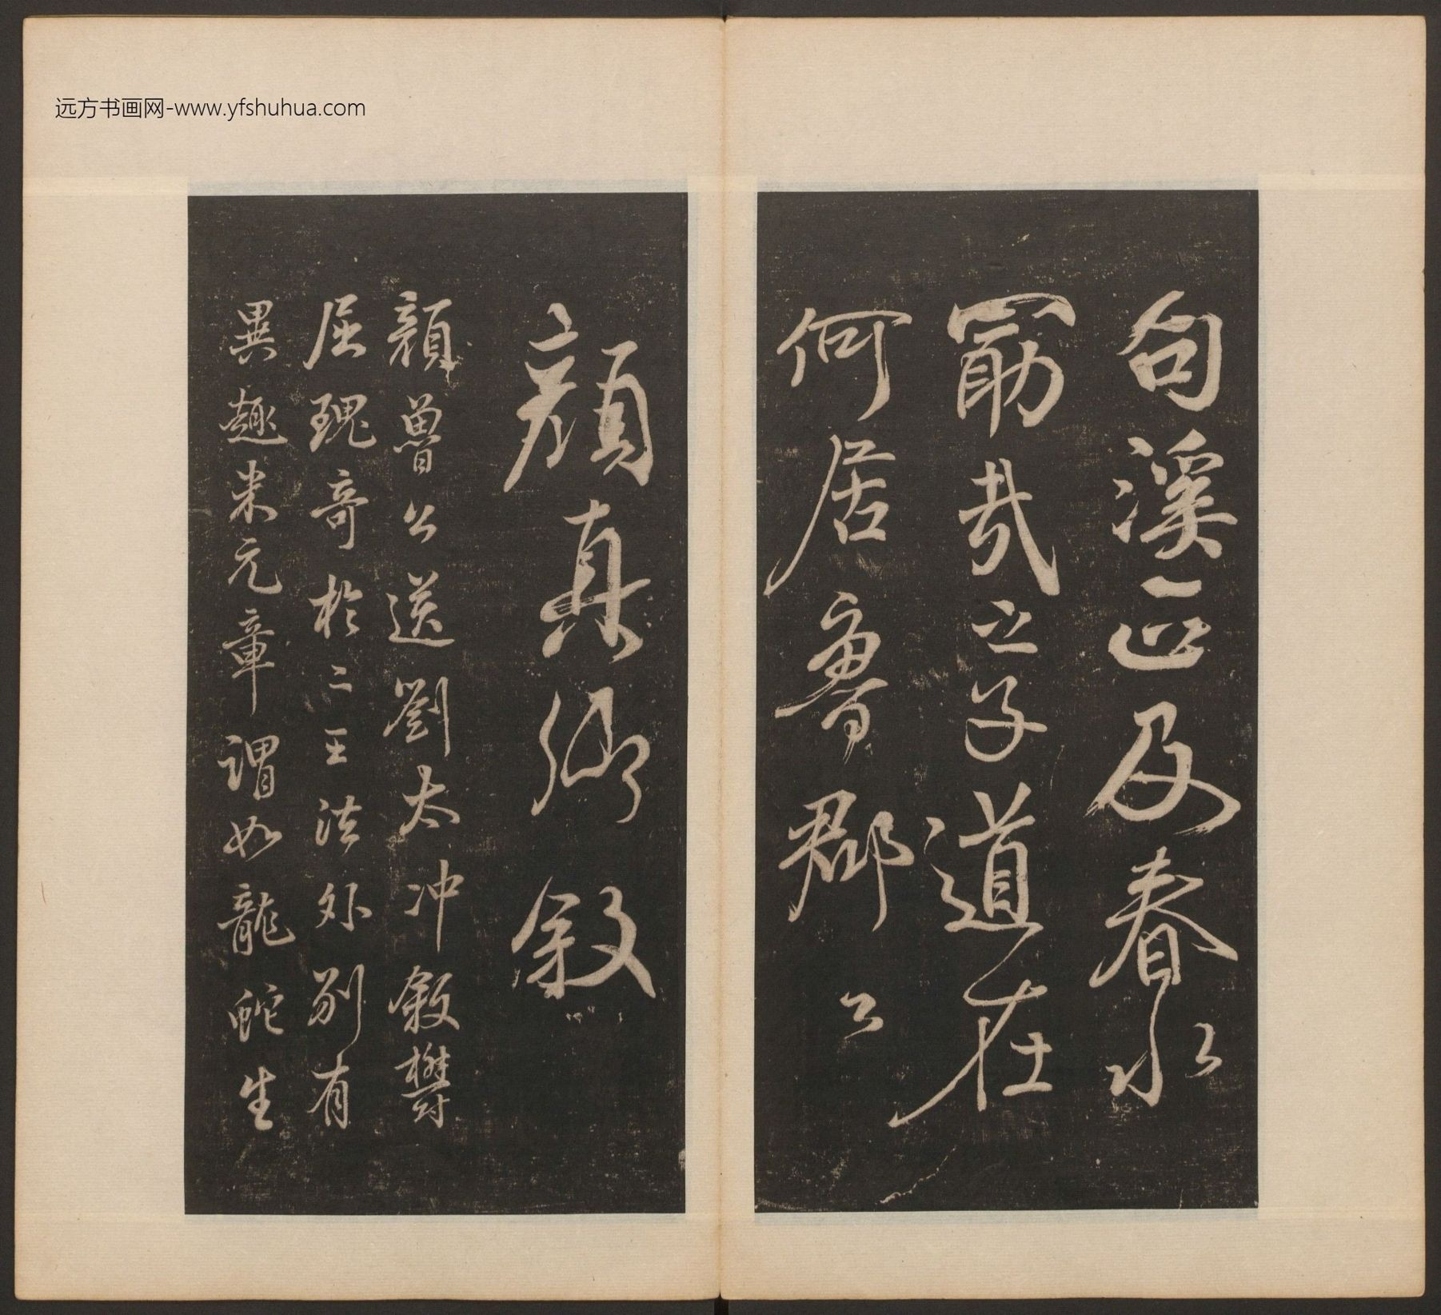 远方书画网-www.yfshuhua.com
句溪正及春水
勗哉之子道在
何居魯郡公
顏真卿叙
顏魯公送劉太冲敘鬱
屈瑰奇於二王法外別有
異趣米元章謂如龍蛇生